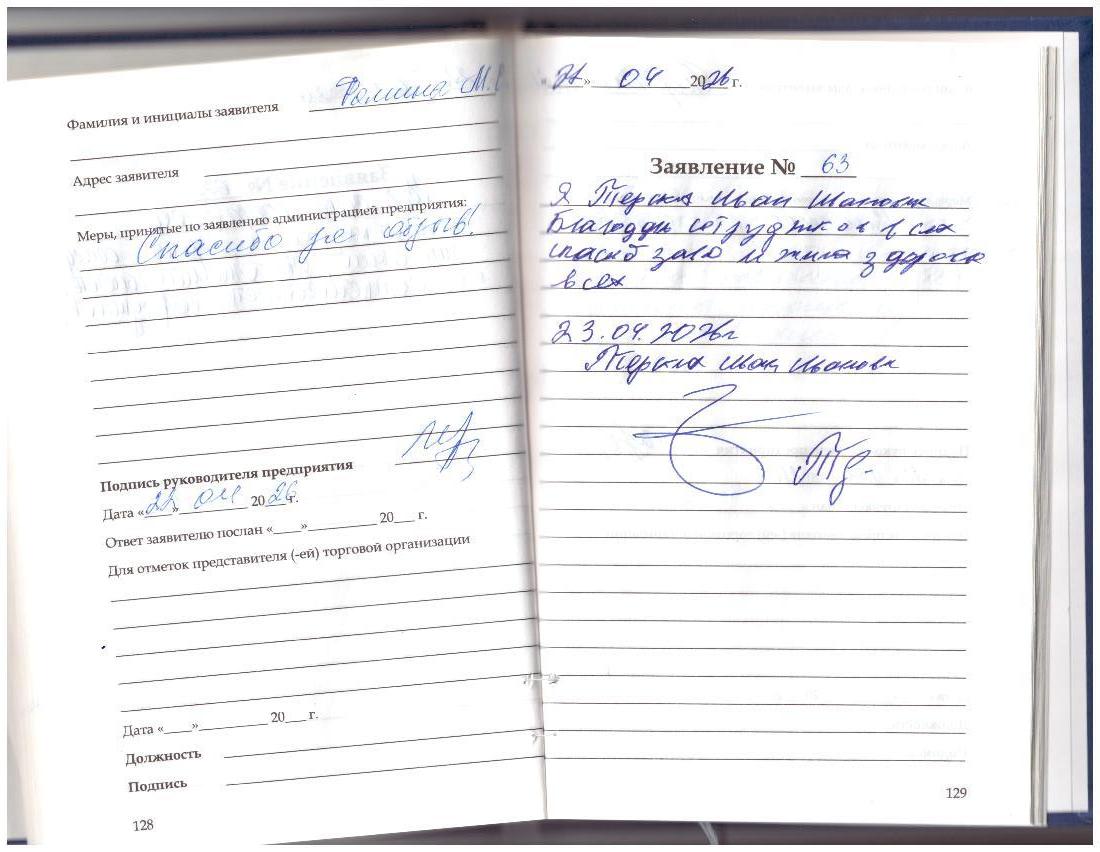 Фамилия и инициалы заявителя Фомина М.
Адрес заявителя
Меры, принятые по заявлению администрацией предприятия:
Спасибо за отзыв!
Подпись руководителя предприятия
Дата «22» 04 2026 г.
Ответ заявителю послан «___»_________ 20___ г.
Для отметок представителя (-ей) торговой организации
Дата «___»_________ 20___ г.
Должность
Подпись
128
« » 04 2026 г.
Заявление № 63
Я Иван
всех
всех
23.04.2026г
Иван Иванови
129